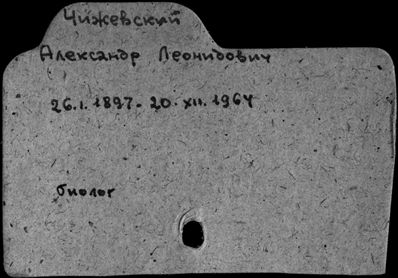 Чижевский
Александр Леонидович
26.I.1897 - 20.XII.1964
биолог